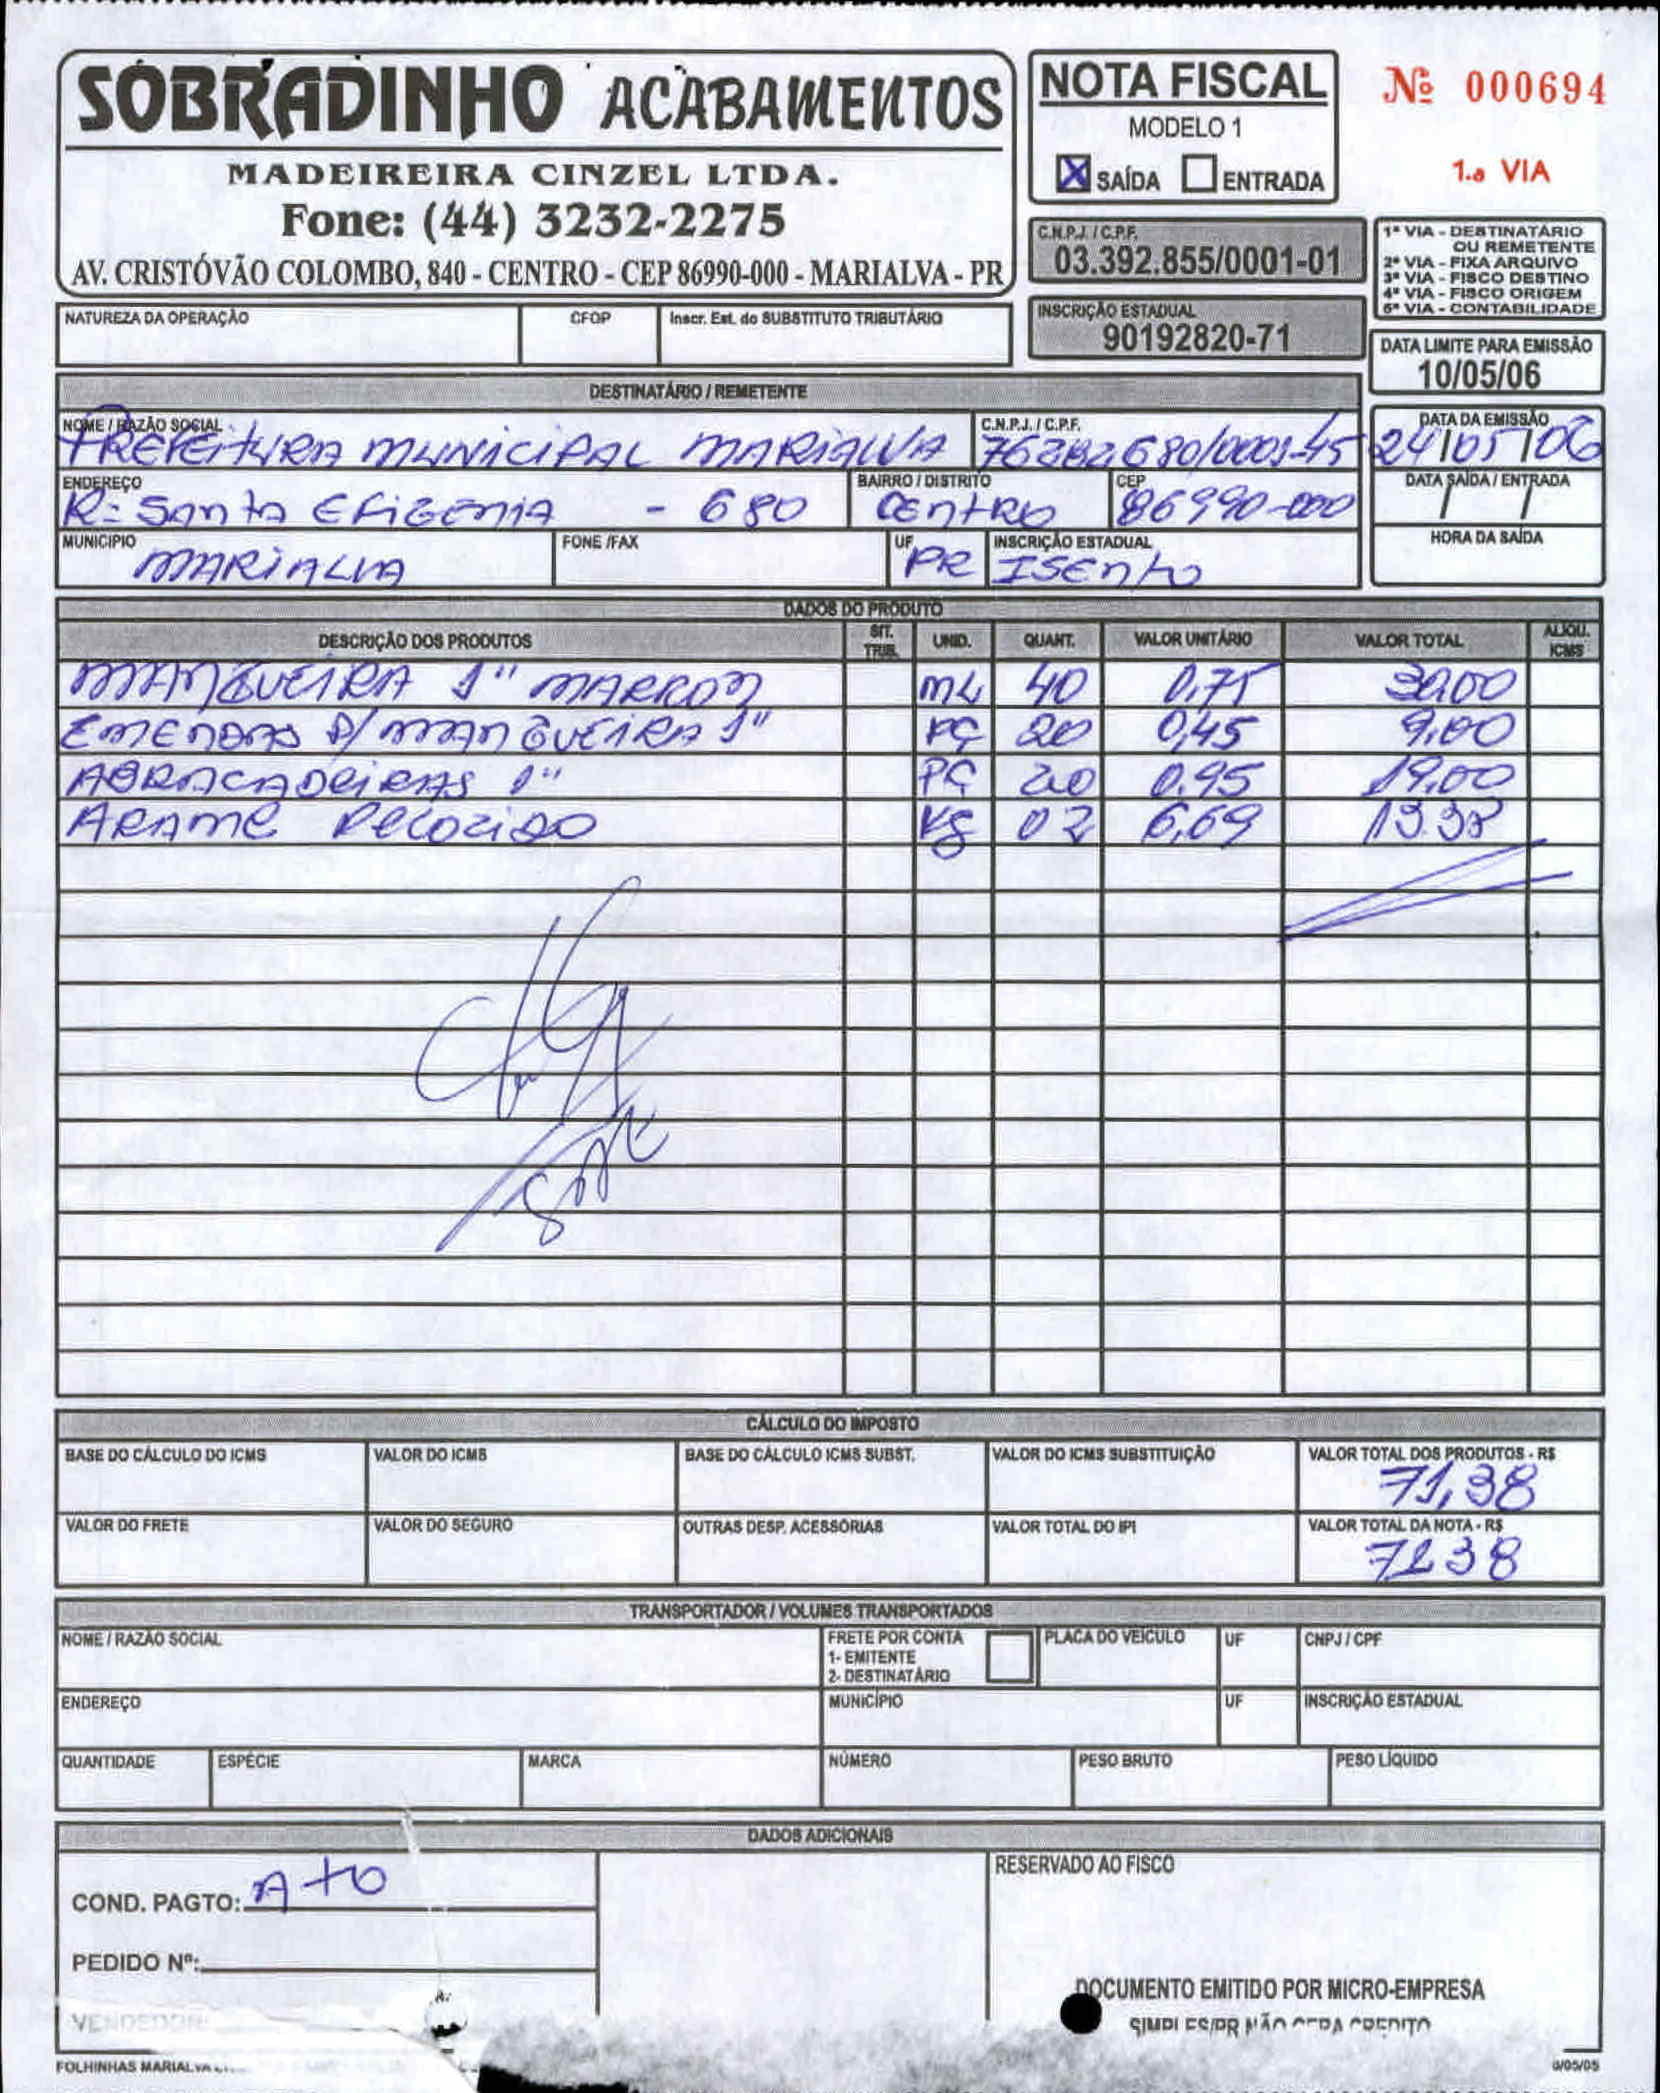 SOBRADINHO ACABAMENTOS
MADEIREIRA CINZEL LTDA.
Fone: (44) 3232-2275
AV. CRISTÓVÃO COLOMBO, 840 - CENTRO - CEP 86990-000 - MARIALVA - PR
NOTA FISCAL
MODELO 1
X SAÍDA ENTRADA
Nº 000694
1.a VIA
C.N.P.J. / C.P.F.
03.392.855/0001-01
INSCRIÇÃO ESTADUAL
90192820-71
1ª VIA - DESTINATÁRIO
OU REMETENTE
2ª VIA - FIXA ARQUIVO
3ª VIA - FISCO DESTINO
4ª VIA - FISCO ORIGEM
5ª VIA - CONTABILIDADE
DATA LIMITE PARA EMISSÃO
10/05/06
NATUREZA DA OPERAÇÃO CFOP Inscr. Est. do SUBSTITUTO TRIBUTÁRIO
DESTINATÁRIO / REMETENTE
NOME / RAZÃO SOCIAL C.N.P.J. / C.P.F. DATA DA EMISSÃO
PREFEITURA MUNICIPAL MARIALVA 76282680/0001-45 24/05/06
ENDEREÇO BAIRRO / DISTRITO CEP DATA SAÍDA / ENTRADA
R: Santa EFIGENIA - 680 CENTRO 86990-000 / /
MUNICIPIO FONE /FAX UF INSCRIÇÃO ESTADUAL HORA DA SAÍDA
MARIALVA PR ISENTO
DADOS DO PRODUTO
DESCRIÇÃO DOS PRODUTOS SIT. TRIB. UNID. QUANT. VALOR UNITÁRIO VALOR TOTAL ALIQU. ICMS
MANGUEIRA 1" MARROM ML 40 0,75 30,00
EMENDAS P/ MANGUEIRA 1" PÇ 20 0,45 9,00
ABRACADEIRAS 1" PÇ 20 0,95 19,00
ARAME RECOZIDO KG 02 6,69 13.38
CÁLCULO DO IMPOSTO
BASE DO CÁLCULO DO ICMS VALOR DO ICMS BASE DO CÁLCULO ICMS SUBST. VALOR DO ICMS SUBSTITUIÇÃO VALOR TOTAL DOS PRODUTOS - R$
71,38
VALOR DO FRETE VALOR DO SEGURO OUTRAS DESP. ACESSÓRIAS VALOR TOTAL DO IPI VALOR TOTAL DA NOTA - R$
71.38
TRANSPORTADOR / VOLUMES TRANSPORTADOS
NOME / RAZÃO SOCIAL FRETE POR CONTA PLACA DO VEÍCULO UF CNPJ / CPF
1- EMITENTE
2- DESTINATÁRIO
ENDEREÇO MUNICÍPIO UF INSCRIÇÃO ESTADUAL
QUANTIDADE ESPÉCIE MARCA NÚMERO PESO BRUTO PESO LÍQUIDO
DADOS ADICIONAIS
COND. PAGTO: A +0
PEDIDO Nº:
VENDEDOR
RESERVADO AO FISCO
DOCUMENTO EMITIDO POR MICRO-EMPRESA
SIMPLES/PR NÃO GERA CREDITO
FOLHINHAS MARIALVA